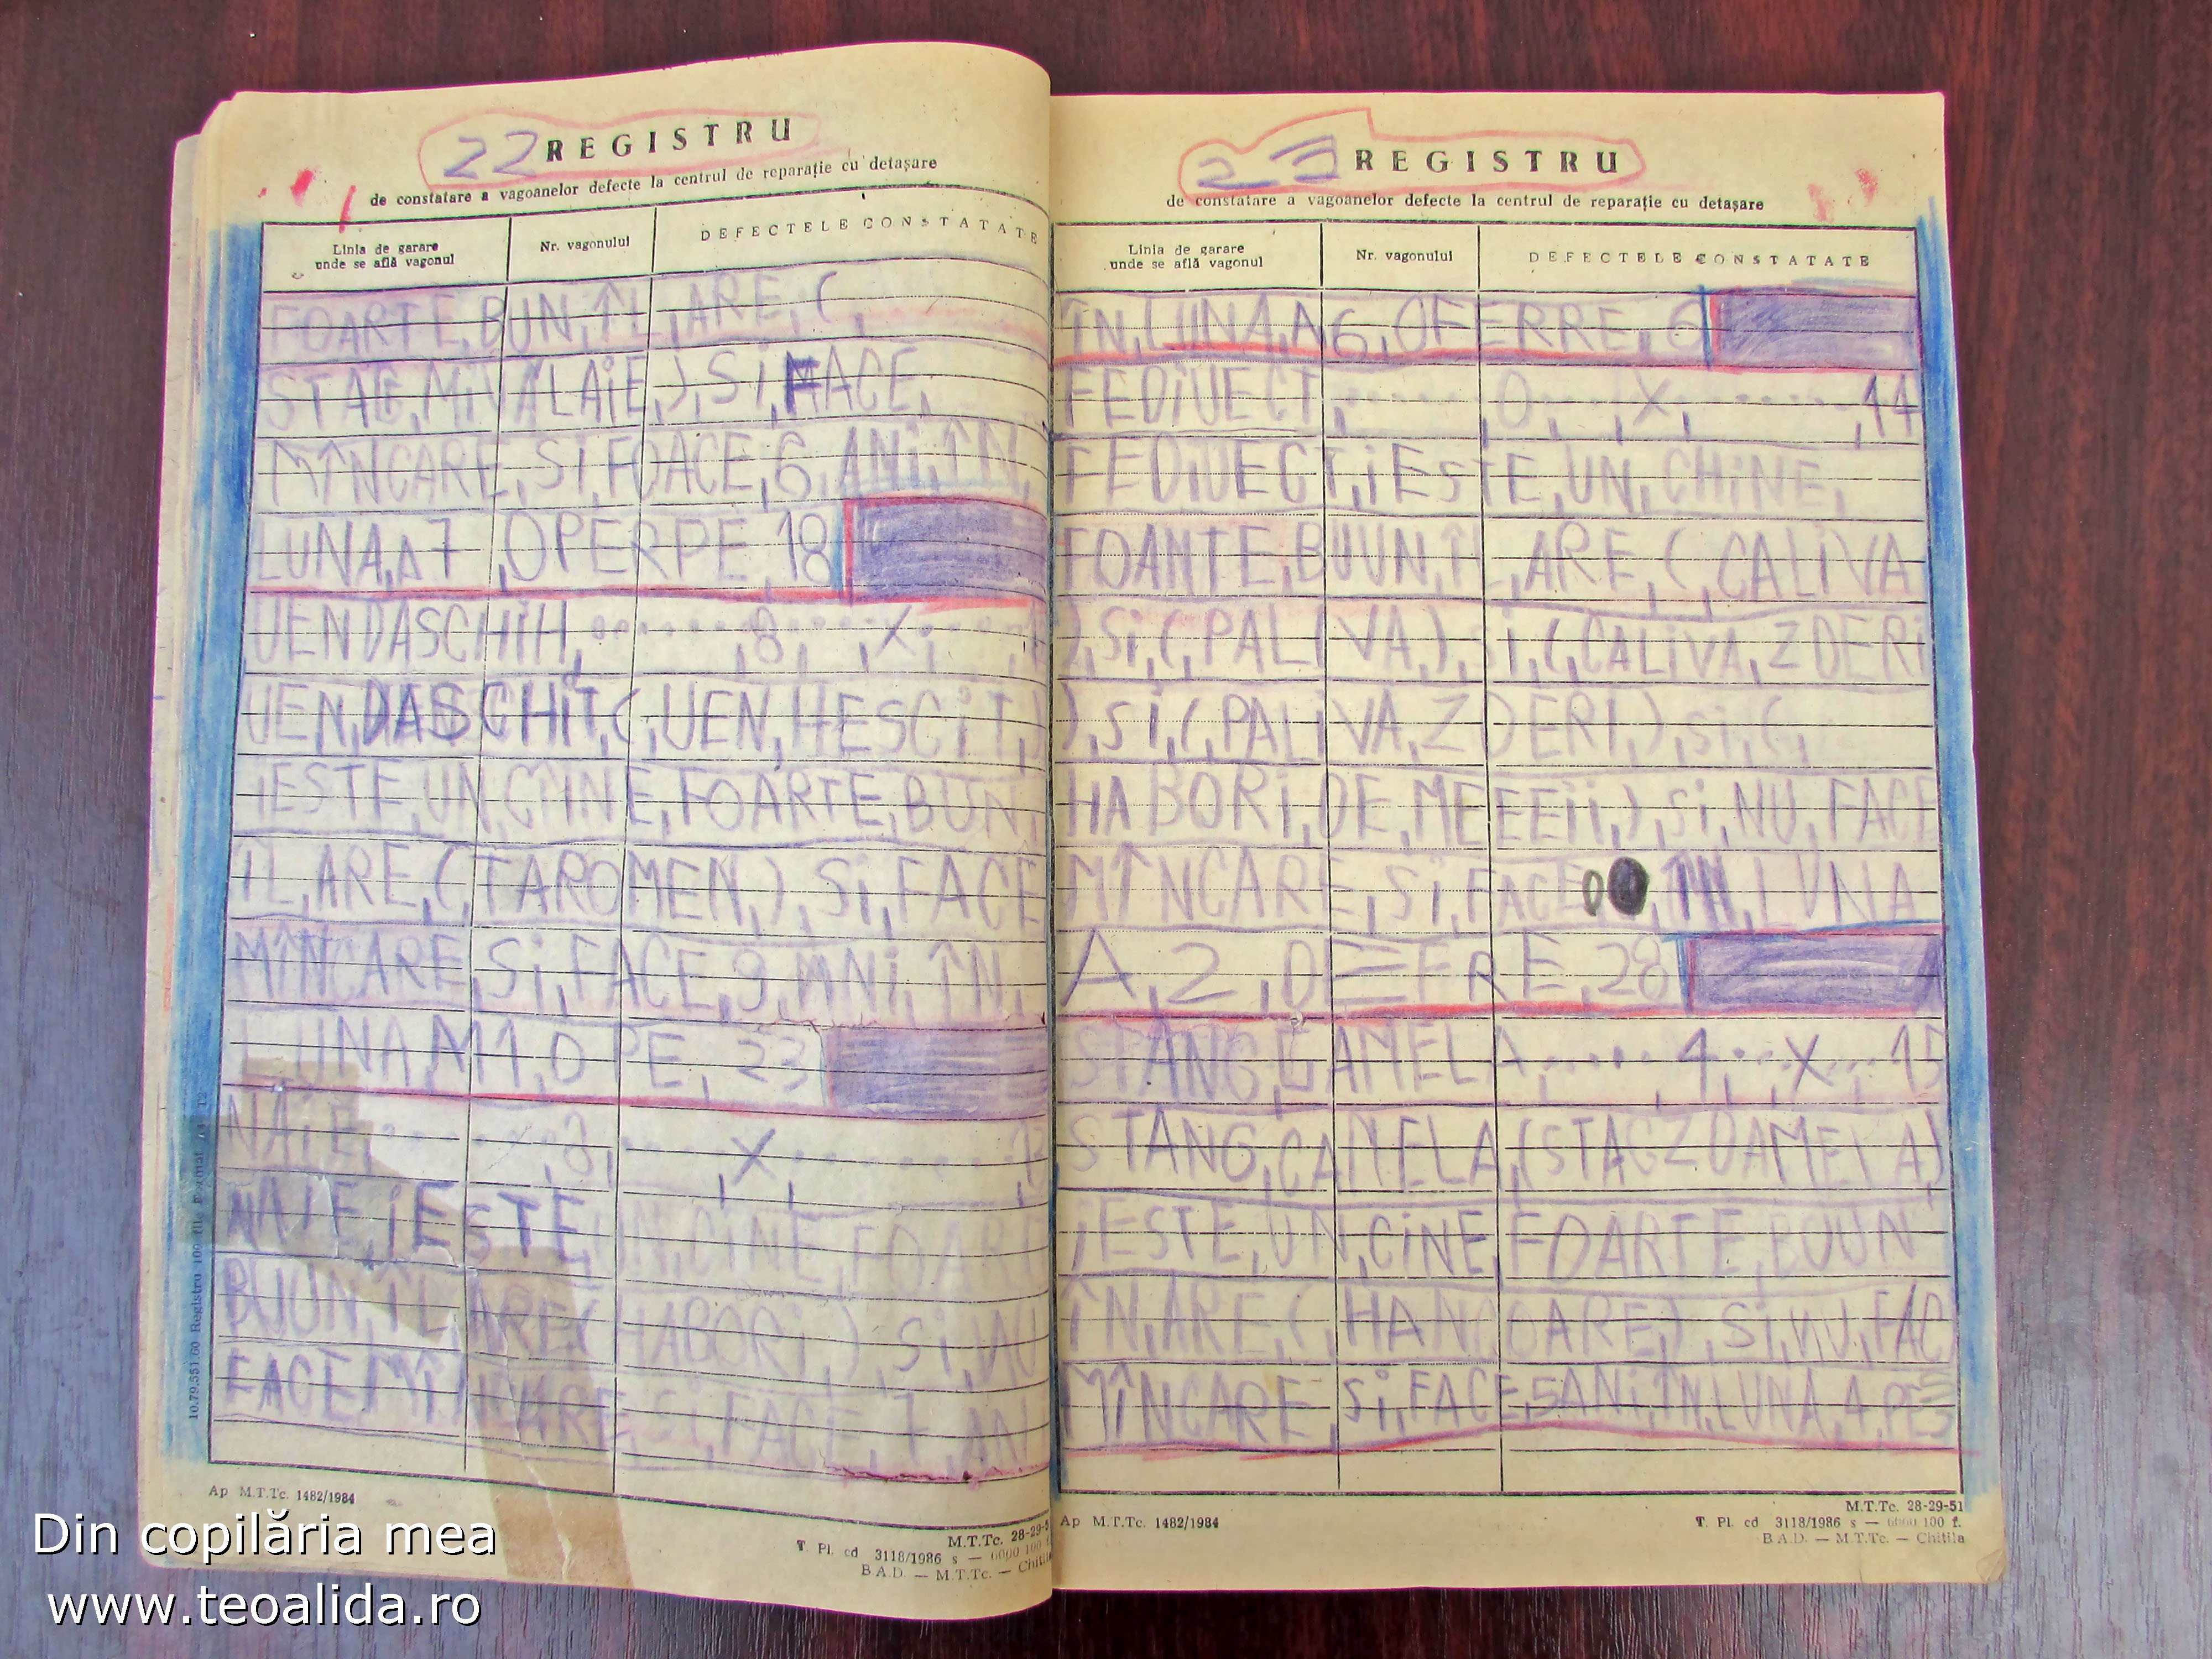 22 REGISTRU
de constatare a vagoanelor defecte la centrul de reparație cu detașare
Linia de garare
unde se află vagonul
Nr. vagonului
DEFECTELE CONSTATATE
FOARTE, BUN, ÎL, ARE, (,
STAG, MiVALAiE,), Si, FACE,
MÎNCARE, Si, FOACE, 6, ANi, ÎN,
LUNA, A 7, OPERPE, 18
UENDASCHIH, 8, X,
UEN, DASCHiT, (, UEN, HESCiT,)
iESTE, UN, CiINE, FOARTE, BUN,
ÎL, ARE, (, TAROMEN,), Si, FACE
MÎNCARE, Si, FACE, 9, MNi, ÎN,
LUNA, M1, OPE, 23
NAiE, 8, X,
NAIE, iESTE, UN, CiNE, FOAR
BUUN, ÎL, ARE (HABORi,), Si, NU
FACE MÎNCARE, Si, FACE, 7, ANI
10.79.551.60 Registru 100 fil. Format A4
Ap M.T.Tc. 1482/1984
M.T.Tc. 28-29-5
T. Pl. cd 3118/1986 s — 6000 100 f
B.A.D. — M.T.Tc. — Chitila
23 REGISTRU
de constatare a vagoanelor defecte la centrul de reparație cu detașare
Linia de garare
unde se află vagonul
Nr. vagonului
DEFECTELE CONSTATATE
ÎN, LUNA, A 6, OFERRE, 6
FEDiUECT, 0, X, 14
FEDiUECT, iESTE, UN, CHiNE,
FOANTE, BUUN, ÎL, ARE, (, CALiVA
), Si, (, PALIVA,), Si, (, CALiVA, ZDERi
), Si, (, PALiVA, ZDERI,), Si, (,
HABORi, DE, MEEEii,), Si, NU, FACE
MÎNCARE, Si, FACE, 0, ÎN, LUNA
A, 2, OEFRE, 28
STANG, GAMELA, 4, X, 15
STANG, CAMELA, (STAGZDAMELA)
iESTE, UN, CiNE, FOARTE, BUUN
ÎN, ARE, (, HANCOARE,), Si, NU, FAC
MÎNCARE, Si, FACE, 5 ANi, ÎN, LUNA, 4, PES
Ap M.T.Tc. 1482/1984
M.T.Tc. 28-29-51
T. Pl. cd 3118/1986 s — 6000 100 f.
B.A.D. — M.T.Tc. — Chitila
Din copilăria mea
www.teoalida.ro